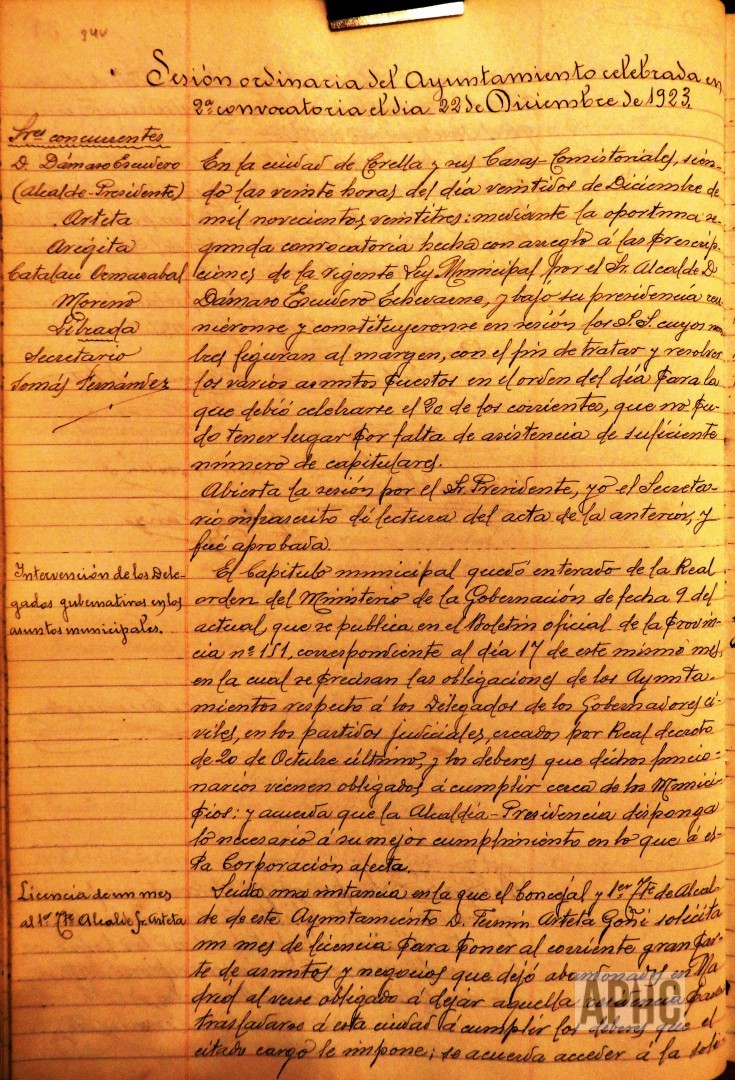 Sesión ordinaria del Ayuntamiento celebrada en
2ª convocatoria el dia 22 de Diciembre de 1923.
Sres concurrentes
D. Dámaso Escudero
(Alcalde-Presidente)
Arteta
Arégita
Catalan Ormazabal
Moreno
Librada
Secretario
Tomás Fernández
En la ciudad de Corella y sus Casas-Comistoriales, sién-
do las veinte horas del día veintidos de Diciembre de
mil novecientos veintitres: mediante la oportuna se-
gunda convocatoria hecha con arreglo á las prescrip-
ciones de la vigente Ley Municipal por el Sr. Alcalde D.
Dámaso Escudero, y bajo su presidencia reu-
niéronse y constituyeronse en sesión los S.S. cuyos nom-
bres figuran al margen, con el fin de tratar y resolver
los varios asuntos puestos en el orden del día para la
que debió celebrarse el 20 de los corrientes, que no pu-
do tener lugar por falta de asistencia de suficiente
número de capitulares.
Abierta la sesión por el Sr. Presidente, yo el Secreta-
rio infrascrito dí lectura del acta de la anterior, y
fué aprobada.
Intervención de los Dele-
gados gubernativos en los
asuntos municipales.
El Capitulo municipal quedó enterado de la Real
orden del Ministerio de la Gobernación de fecha 9 del
actual, que se publica en el Boletin oficial de la provin-
cia nº 151, correspondiente al día 17 de este mismo mes,
en la cual se precisan las obligaciones de los Ayunta-
mientos respecto á los Delegados de los Gobernadores ci-
viles, en los partidos judiciales, creados por Real decreto
de 20 de Octubre último, y los deberes que dichos funcio-
narios vienen obligados á cumplir cerca de los Munici-
pios: y acuerda que la Alcaldía-Presidencia disponga
lo necesario á su mejor cumplimiento en lo que á es-
ta Corporación afecta.
Licencia de un mes
al 1er Tte Alcalde Sr. Arteta
Leida una instancia en la que el Concejal y 1er Tte de Alcal-
de de este Ayuntamiento D. Fermín Arteta Goñi solicita
un mes de licencia para poner al corriente gran par-
te de asuntos y negocios que dejó abandonados en Ma-
drid al verse obligado á dejar aquella residencia para
trasladarse á esta ciudad á cumplir los deberes que el
citado cargo le impone; se acuerda acceder á la soli-
APHC